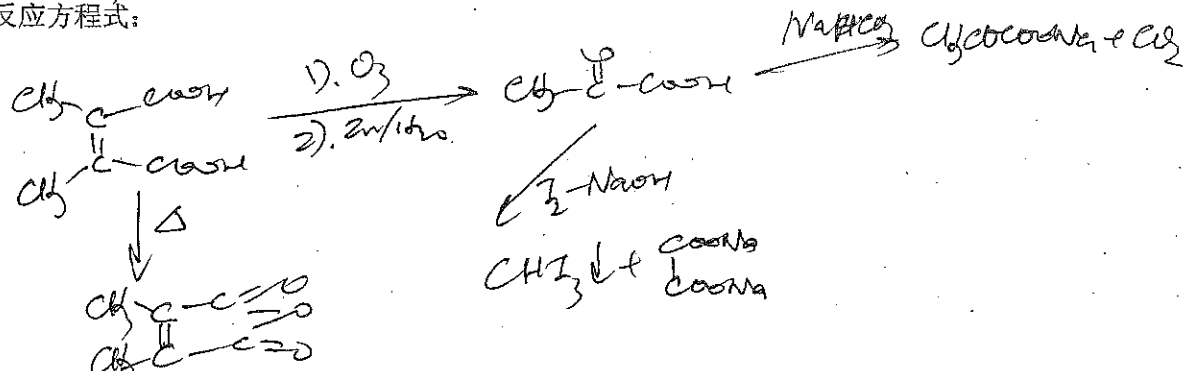 反应方程式:
CH3 C COOH
CH3 C COOH
1). O3
2). Zn/H2O
O
CH3-C-COOH
NaHCO3
CH3COCOONa + CO2
Δ
I2-NaOH
CHI3↓ + COONa
COONa
CH3 C-C=O
O
CH3 C-C=O